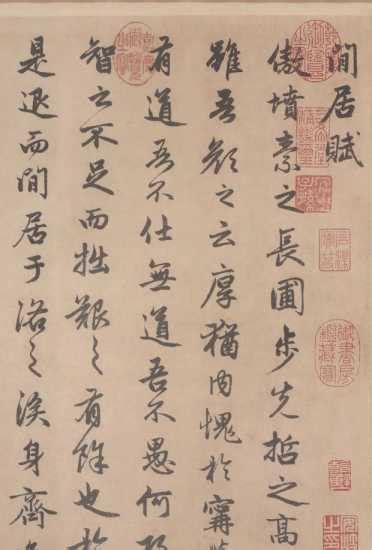 閒居賦
傲墳素之長圃步先哲之高
雖吾顏之云厚猶內愧於甯
有道吾不仕無道吾不愚何
智之不足而拙艱之有餘也
是退而閒居于洛之涘身齊
石渠寶笈
御書房鑑藏寶